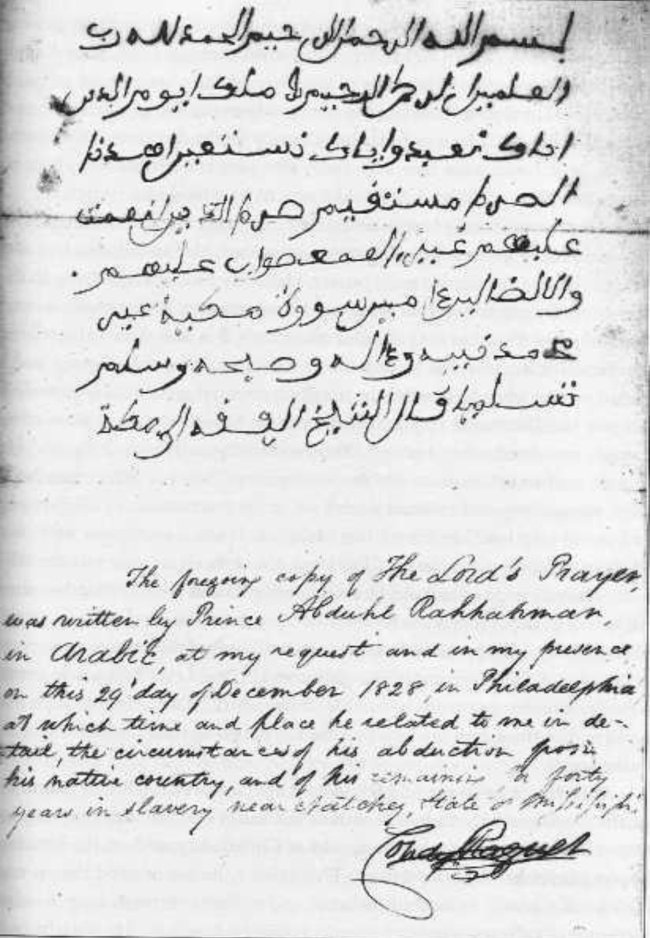 بسم الله الرحمن الرحيم الحمد لله رب
العلمين الرحمن الرحيم ملك ايوم الدين
اياك نعبد واياك نستعين اهدنا
الصراط مستقيم صراط الذين انعمت
عليهم غير المغضوب عليهم
والالضالين امين سورة مكية
محمد نبيه وءاله وصحبه وسلم
تسليما قال الشيخ الفقه
The foregoing copy of The Lord's Prayer,
was written by Prince Abduhl Rahhahman,
in Arabic, at my request and in my presence
on this 29 day of December 1828, in Philadelphia
at which time and place he related to me in de-
tail, the circumstances of his abduction from
his native country, and of his remaining forty
years in slavery near Natchez, State of Missisipi.
Condy Raguet